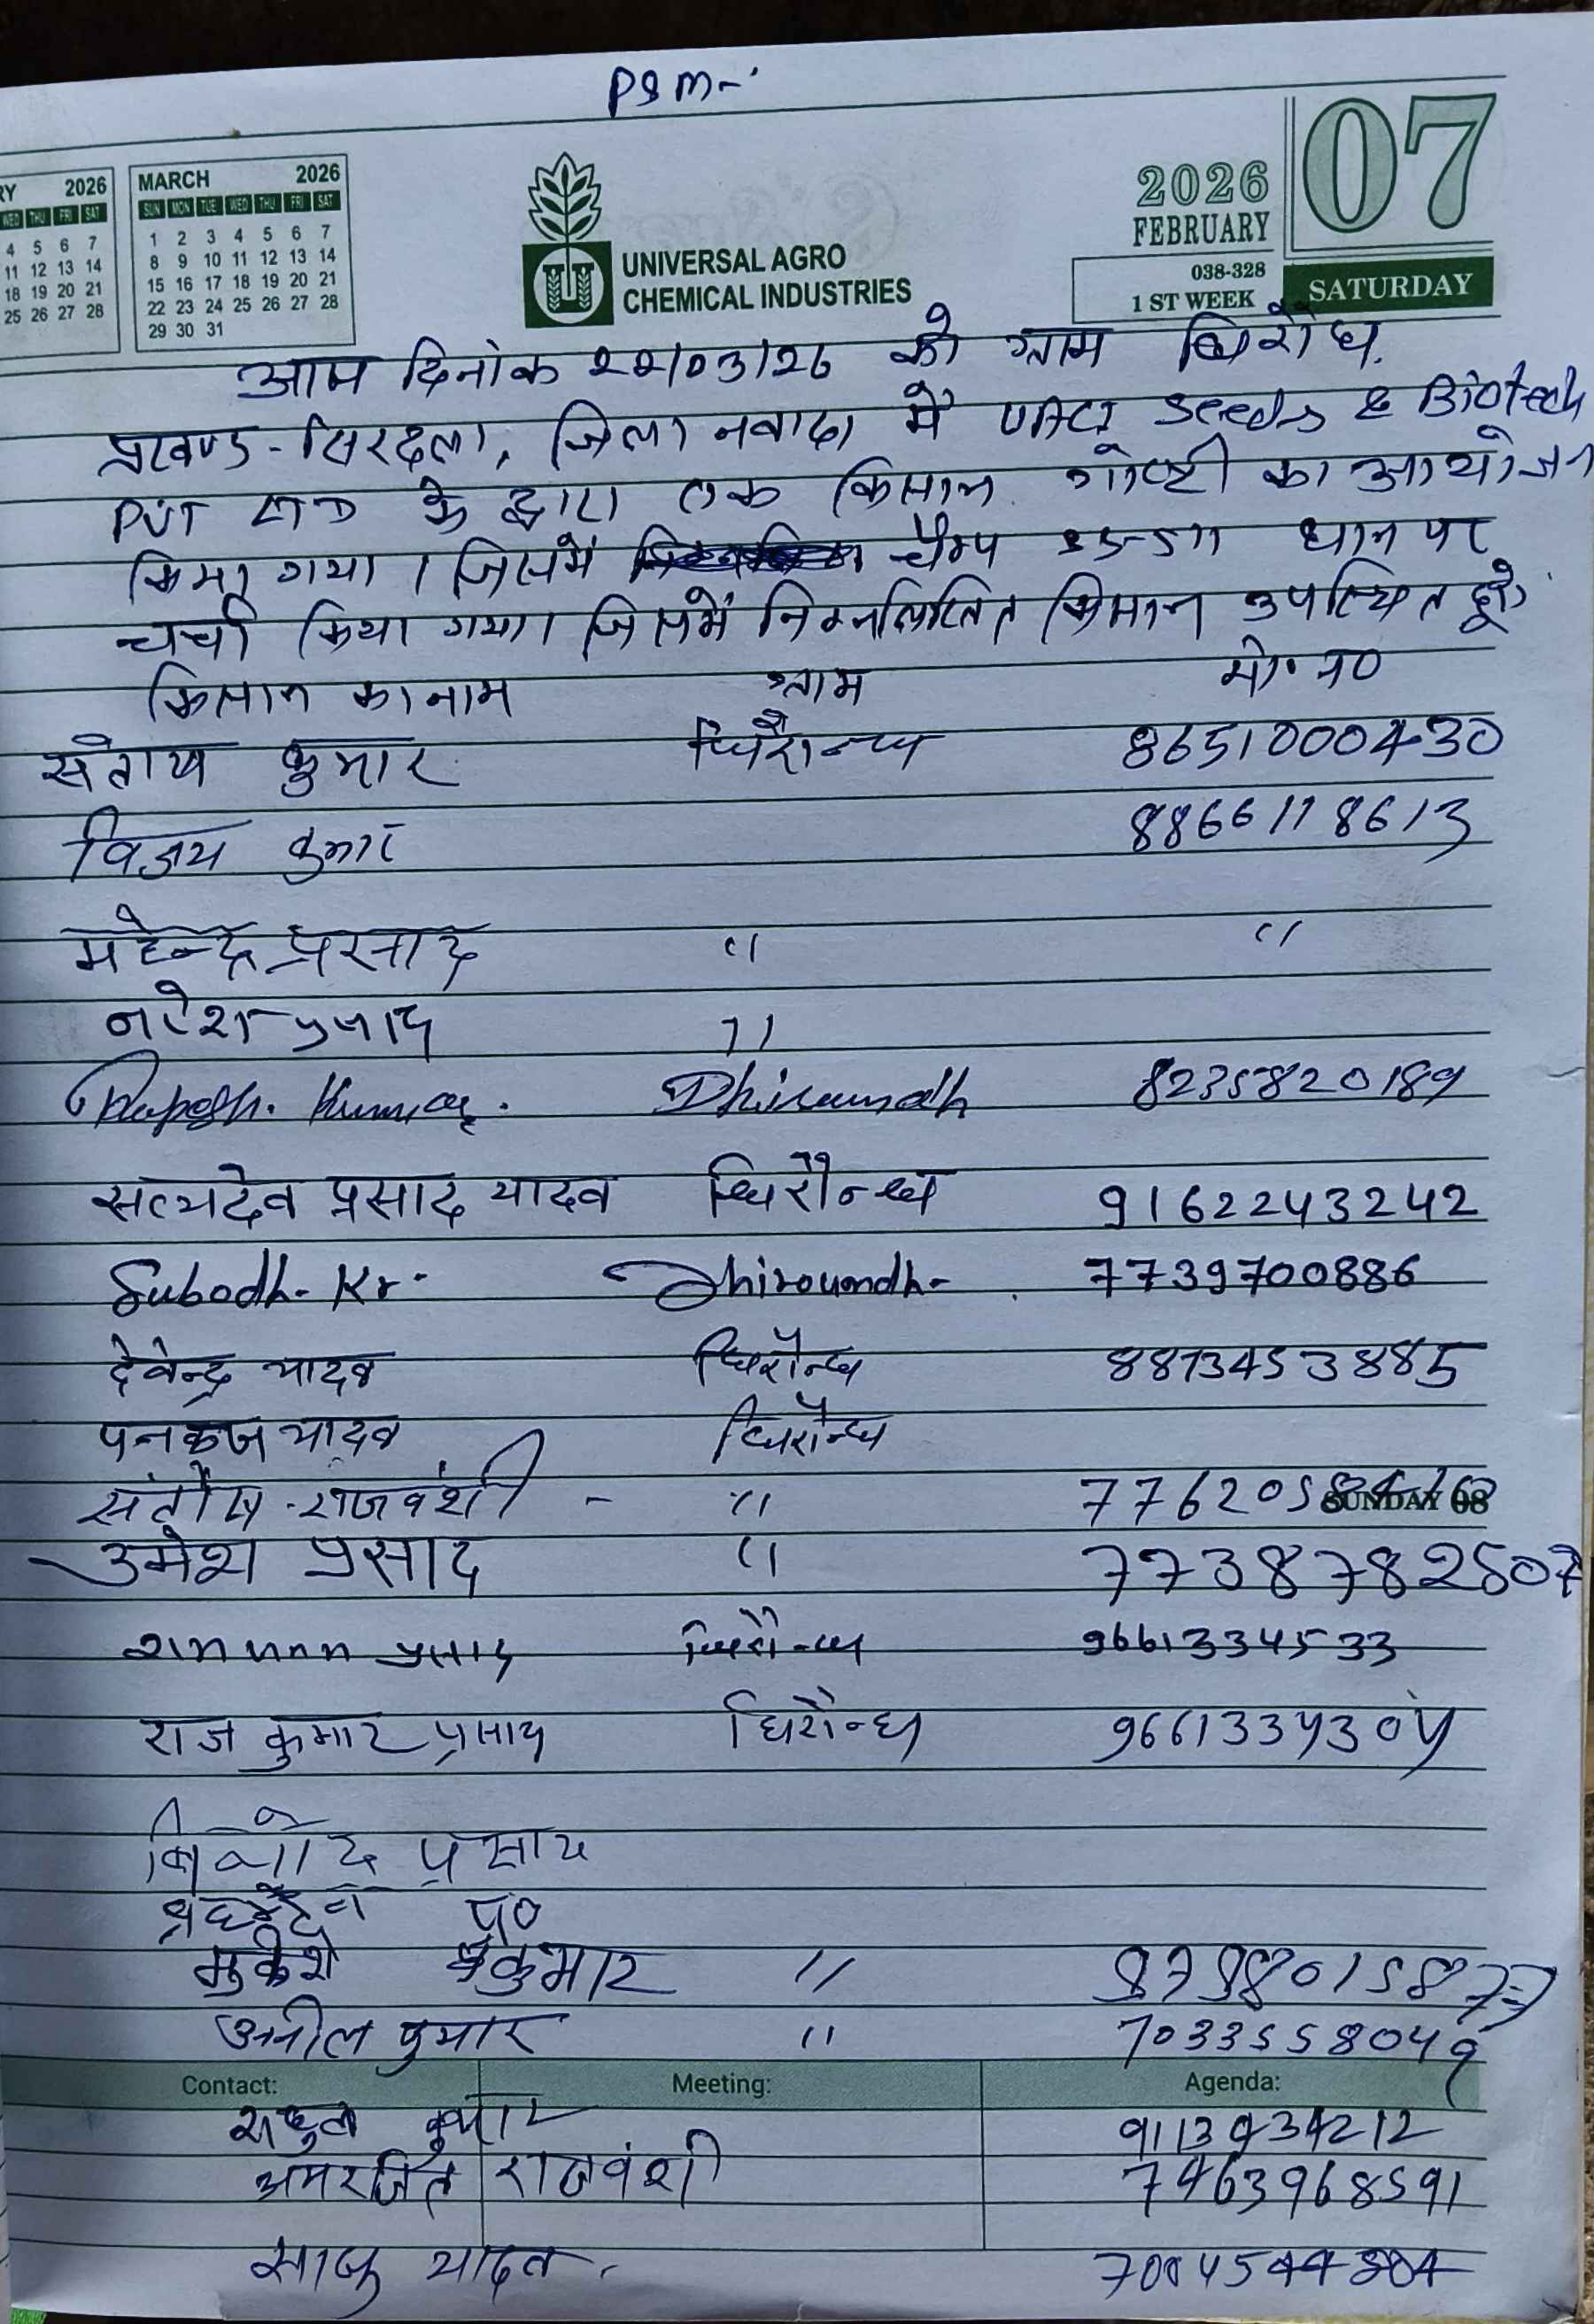 PSM-
RY 2026
WED THU FRI SAT
4 5 6 7
11 12 13 14
18 19 20 21
25 26 27 28
MARCH 2026
SUN MON TUE WED THU FRI SAT
1 2 3 4 5 6 7
8 9 10 11 12 13 14
15 16 17 18 19 20 21
22 23 24 25 26 27 28
29 30 31
UNIVERSAL AGRO
CHEMICAL INDUSTRIES
2026
FEBRUARY
07
038-328
1 ST WEEK
SATURDAY
आज दिनांक 22/03/26 को ग्राम धिरौंध,
प्रखण्ड-सिरदला, जिला नवादा में UACI Seeds & Biotech
PVT LTD के द्वारा एक किसान गोष्टी का आयोजन
किया गया। जिसमें धान पर
चर्चा किया गया। जिसमें निम्नलिखित किसान उपस्थित हुए
किसान का नाम ग्राम मो० न०
संतोष कुमार धिरौन्ध 8651000430
विजय कुमार 8866118613
महेन्द्र प्रसाद " "
नरेश प्रसाद "
Kumar. Dhiraundh 8235820189
सत्यदेव प्रसाद यादव धिरौन्ध 9162243242
Subodh. Kr. Dhiroundh- 7739700886
देवेन्द्र यादव धिरौन्ध 8873453885
पनकज यादव धिरौन्ध
संतोष राजवंशी - "
SUNDAY 08
उमेश प्रसाद " 7738782507
प्रसाद धिरौन्ध 9661334533
राज कुमार प्रसाद धिरौन्ध 9661334304
विनोद प्रसाद
प्र०
मुकेश कुमार "
अनील कुमार " 7033558049
Contact: Meeting: Agenda:
राहुल कुमार 9113434212
अमरजित राजवंशी 7463968591
यादव